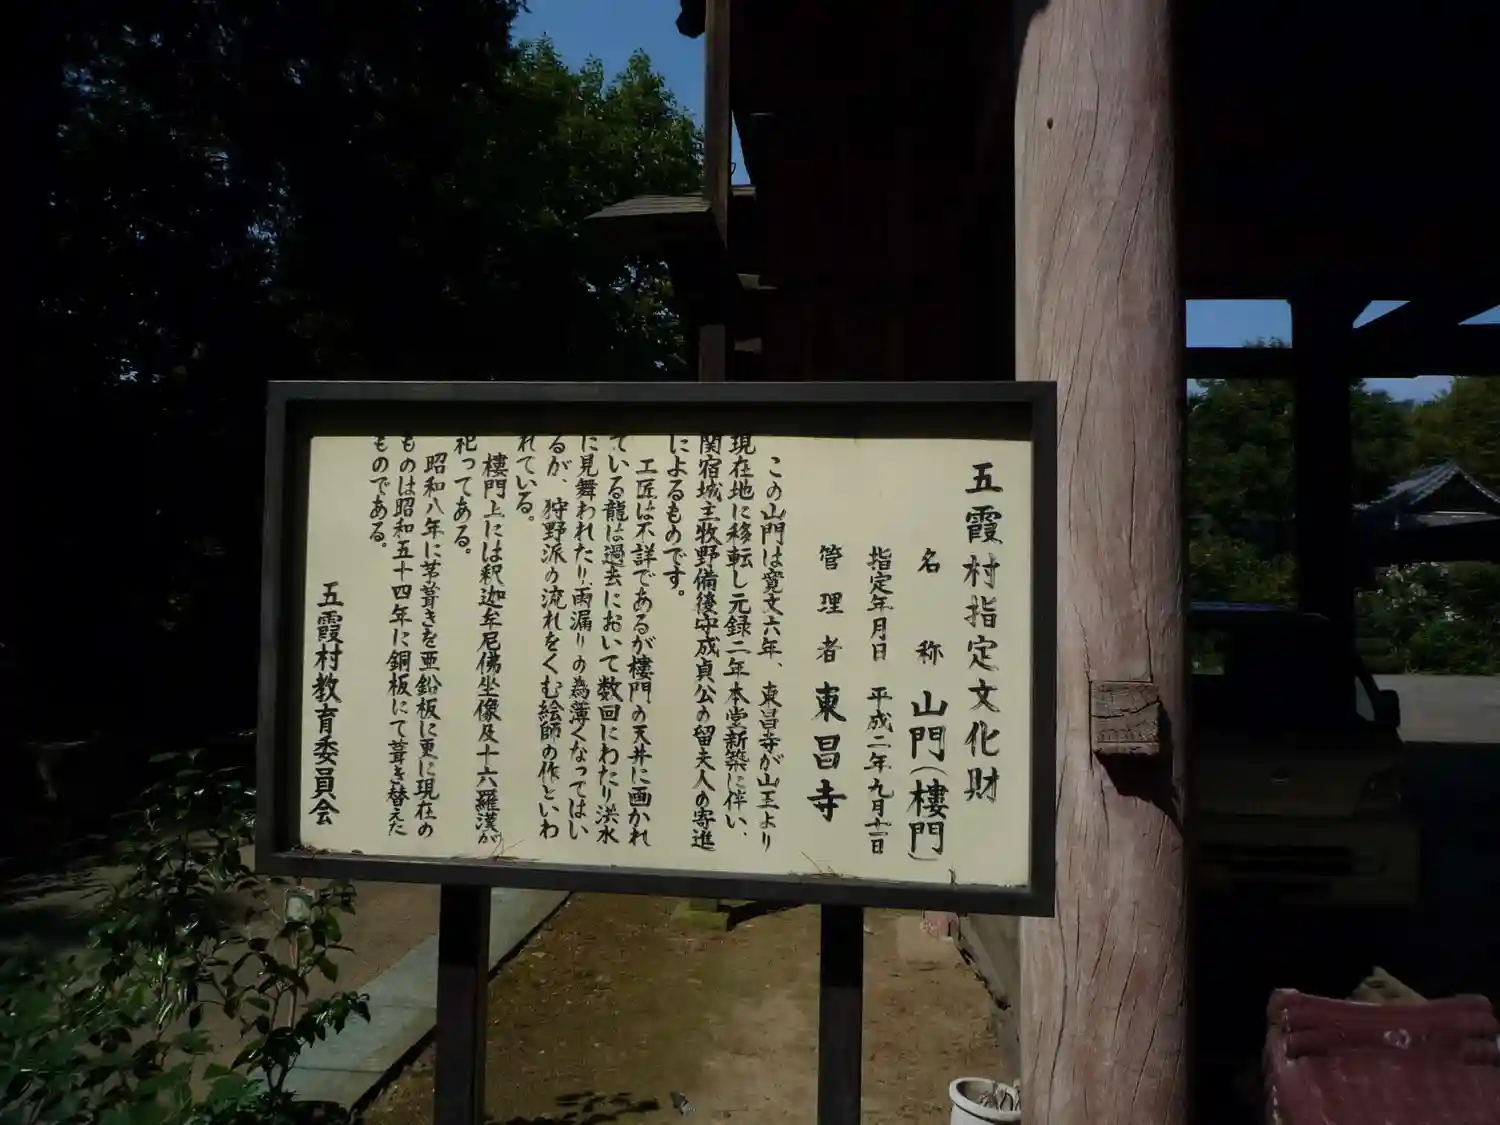 五霞村指定文化財
名称 山門(樓門)
指定年月日 平成二年九月十一日
管理者 東昌寺
この山門は寛文六年、東昌寺が山王より
現在地に移転し元録二年本堂新築に伴い、
関宿城主牧野備後守成貞公の留夫人の寄進
によるものです。
工匠は不詳であるが樓門の天井に画かれ
ている龍は過去において数回にわたり洪水
に見舞われたり雨漏りの為薄くなってはい
るが、狩野派の流れをくむ絵師の作といわ
れている。
樓門上には釈迦牟尼佛坐像及十六羅漢が
祀ってある。
昭和八年に茅葺きを亜鉛板に更に現在の
ものは昭和五十四年に銅板にて葺き替えた
ものである。
五霞村教育委員会